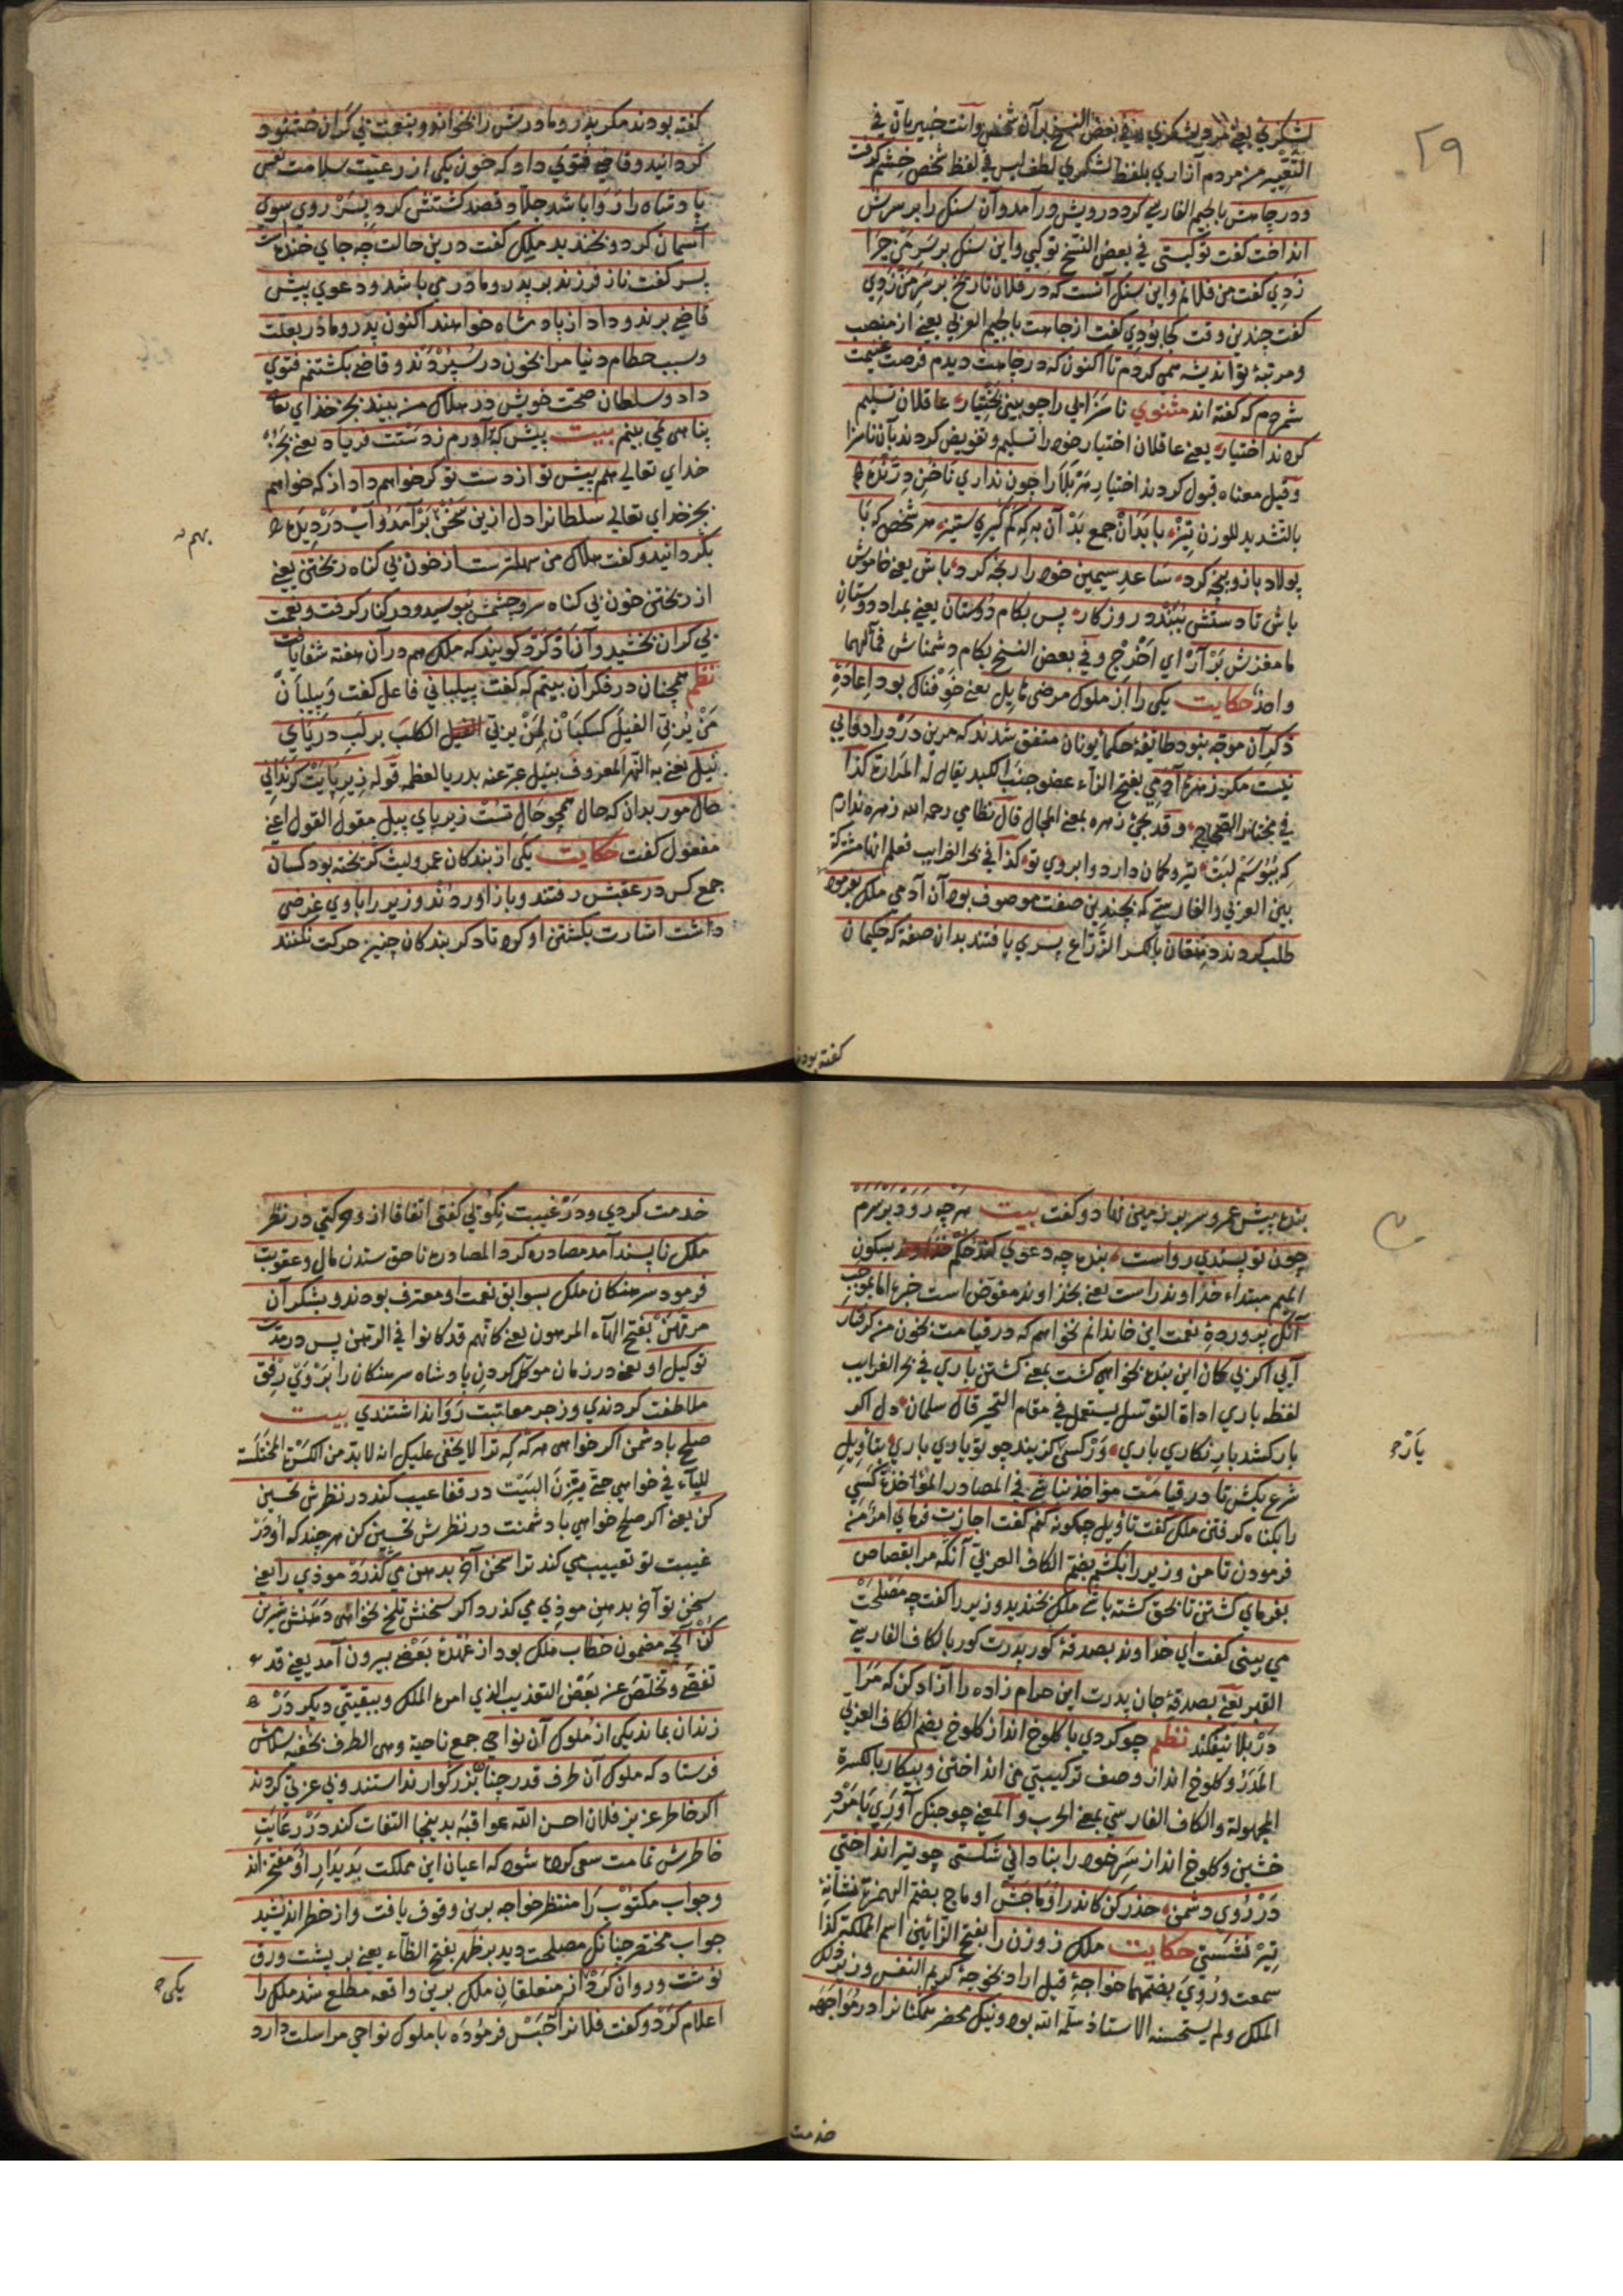 ٢٩
لشکری یعنی مردی لشکری و فی بعض النسخ بر آن شخص وانت خبیر بان فی
التعبیر من مردم آزاری بلفظ لشکری لطف لیس فی لفظ شخص خشم گرفت
و در چاهش بالجیم الفارسی کرد درویش در آمد و آن سنک را بر سرش
انداخت گفت تو کیستی فی بعض النسخ تو کیی و این سنک بر سر من چرا
زدی گفت من فلانم و این سنک آنست که در فلان تاریخ بر سر من زدی
گفت چندین وقت کجا بودی گفت از جاهت بالجیم العربی یعنی از منصب
و مرتبۀ تو اندیشه همی کردم تا اکنون که در چاهت دیدم فرصت غنیمت
شمردم که گفته اند مثنوی ناسزایی را چو بینی بختیار عاقلان تسلیم
کردند اختیار یعنی عاقلان اختیار خود را تسلیم و تفویض کردند بآن ناسزا
وقیل معناه قبول کردند اختیار مر بلا را چون نداری ناخن درنده
بالتشدید للوزن تیز با بدان جمع بد آن به که کم گیری ستیز هر شخص که با
پولاد بازو پنجه کرد ساعد سیمین خود را رنجه کرد باش یعنی خاموش
باش تا دستش ببندد روزکار پس بکام دوستان یعنی بمراد دوستان
مغزش بر آر ای اخرج و فی بعض النسخ بکام دشمناش فمآلهما
واحد حکایت یکی را از ملوک مرضی هایل یعنی خوفناک بود اعادۀ
ذکر آن موجه نبود طائفۀ حکماء یونان متفق شدند که مرین درد را دوایی
نیست مکر زهرۀ آدمی بفتح الزاء عضو جنب الکبد یقال له المرارة کذا
فی مختار الصحاح وقد یجئ زهره بمعنی المجال قال نظامی رحمه الله زهره ندارم
که ببوسم لبت تیر و کمان دارد ابروی تو کذا فی بحر الغرایب فعلم انها مشترکة
بین العربی والفارسی که بچندین صفت موصوف بود آن آدمی ملک بفرمود
طلب کردند دهقان بالکسر الزراع پسری یافتند بدان صفة که حکیمان
گفته بودند
گفته بودند ملک پدر و مادرش را بخواند و بنعمت بی کران خشنود
گردانید و قاضی فتوی داد که خون یکی از رعیت سلامت نفس
پادشاه را روا باشد جلاد قصد کشتنش کرد پسر روی سوی
آسمان کرد و بخندید ملک گفت درین حالت چه جای خندست
پسر گفت ناز فرزند بر پدر و مادر می باشد و دعوی پیش
قاضی برند و داد از پادشاه خواهند اکنون پدر و مادر بعلت
و سبب حطام دنیا مرا بخون در سپردند و قاضی بکشتنم فتوی
داد و سلطان صحت خویش در هلاک من بیند بجز خدای تعالی
پناهی نمی بینم بیت پیش که بر آورم ز دستت فریاد یعنی بجز
خدای تعالی هم پیش تو از دست تو کر خواهم داد از که خواهم
بجز خدای تعالی سلطانرا دل ازین سخن بر آمد و آب در دیده
بگردانید و گفت هلاک من بهترست از خون بی کناه ریختن یعنی
از ریختن خون بی کناه سر و چشمش ببوسید و در کنار گرفت و نعمت
بی کران بخشید و آزاد کرد گویند که ملک هم در آن هفته شفا یافت
نظم همچنان در فکر آن بیتم که گفت پیلبانی فاعل گفت و پیلبان
من یربی الفیل کسکبان لمن یربی الکلب بر لب دریای
نیل یعنی به النهر المعروف بنیل عبر عنه بدریا لعظمه قوله زیر پایت کر بدانی
حال مور بدان که حال همچو حال تست زیر پای پیل مقول القول اعنی
مفعول گفت حکایت یکی از بندکان عمرو لیث گریخته بود کسان
جمع کس در عقبش رفتند و باز آوردند وزیر را با وی غرضی
داشت اشارت بکشتن او کرد تا دکر بندکان چنین حرکت نکنند
بنده پیش عمرو سر بر زمین نهاد و گفت بیت هر چه رود بر سرم
چون تو پسندی رواست بنده چه دعوی کند حکم بسکون
المیم مبتداء خداوند راست یعنی بخداوند مفوض است خبره اما بموجب
آنک پروردۀ نعمت این خاندانم نخواهم که در قیامت بخون من گرفتار
آیی اکر بی کمان این بنده بخواهی کشت بمعنی کشتن باری فی بحر الغرایب
لفظ باری اداة التوسل یستعمل فی مقام التحیر قال سلمان دل اکر
بار کشد بار نکاری باری ور کسی کزیند چو تو یاری باری بتأویل
یارجو
شرع بکش تا در قیامت مؤاخذ نباشی فی المصادر المؤاخذة کسی
را بکناه گرفتن ملک گفت تأویل چگونه کنم گفت اجازت فرمای امر من
فرمودن تا من وزیر را بکشم بضم الکاف العربی آنگه مرا بقصاص
بفرمای کشتن تا بحق کشته باشی ملک بخندید وزیر را گفت چه مصلحت
می بینی گفت ای خداوند بصدقۀ کور پدرت کور بالکاف الفارسی
القبر یعنی بصدقۀ جان پدرت این حرام زاده را آزاد کن که مرا
در بلا نیفکند نظم چو کردی با کلوخ انداز کلوخ بضم الکاف العربی
المدر و کلوخ انداز وصف ترکیبی من انداختن و پیکار بالکسرة
المجهولة والکاف الفارسی بمعنی الحرب والمعنی چو جنک آوری با مرد
خشین و کلوخ انداز سر خود را بنادانی شکستی چو تیر انداختی
در روی دشمن حذر کن کاندر اوماجش اوماج بضم الهمزة نشانۀ
تیر نشستی حکایت ملک زوزن را بفتح الزائین اسم المملکة کذا
سمعت وروی بضمهما خواجۀ قیل اراد بخوجه کریم النفس وزیر ذلک
الملک ولم یستحسنه الاستاذ سلمه الله بود و نیک محضر همکنانرا در مواجهه
خدمت
خدمت کردی و در غیبت نکویی گفتی اتفاقا از وی حرکتی در نظر
ملک ناپسند آمد مصادره کرد المصادره ناحق ستدن مال و عقوبت
فرمود سرهنکان ملک بسوابق نعمت او معترف بودند و بشکر آن
مرتهن بفتح الهاء المرهون یعنی کانهم قد کانوا فی الرتهن پس در مدت
توکیل او یعنی در زمان موکل کردن پادشاه سرهنکان را بر وی رفق
ملاطفت کردندی و زجر و معاتبت روا نداشتندی بیت
صلح با دشمن اکر خواهی هر که که ترا لا یخفی علیک انه لا بد من الکسرة المختلسة
للیاء فی خواهی حتی یتزن البیت در قفا عیب کند در نظرش تحسین
کن یعنی اکر صلح خواهی با دشمنت در نظرش تحسین کن هر چند که او در
غیبت تو تعییب می کند ترا سخن آخر بدهن می گذرد موذی را یعنی
سخن تو آخر بدهن موذی می گذرد اکر سخنش تلخ نخواهی دهنش شیرین
کن آنچه مضمون خطاب ملک بود از عهدۀ بعضی بیرون آمد یعنی قد
تفصی و تخلص عن بعض التعذیب الذی امره الملک و ببقیتی دیگر در
زندان بماند یکی از ملوک آن نواحی جمع ناحیة وهی الطرف بخفیه پیامش
فرستاد که ملوک آن طرف قدر چنان بزرگوار ندانستند و بی عزتی کردند
اکر خاطر عزیز فلان احسن الله عواقبه بدینجا التفات کند در رعایت
خاطرش تمامت سعی کرده شود که اعیان این مملکت بدیدار او مفتخراند
و جواب مکتوب را منتظر خواجه برین وقوف یافت و از خطر اندیشید
جواب مختصر چنانک مصلحت دید بر ظهر بفتح الظاء یعنی بر پشت ورق
نوشت و روان کرد از متعلقان ملک برین واقعه مطلع شد ملک را
اعلام کرد و گفت فلانرا حبس فرموده با ملوک نواحی مراسلت دارد